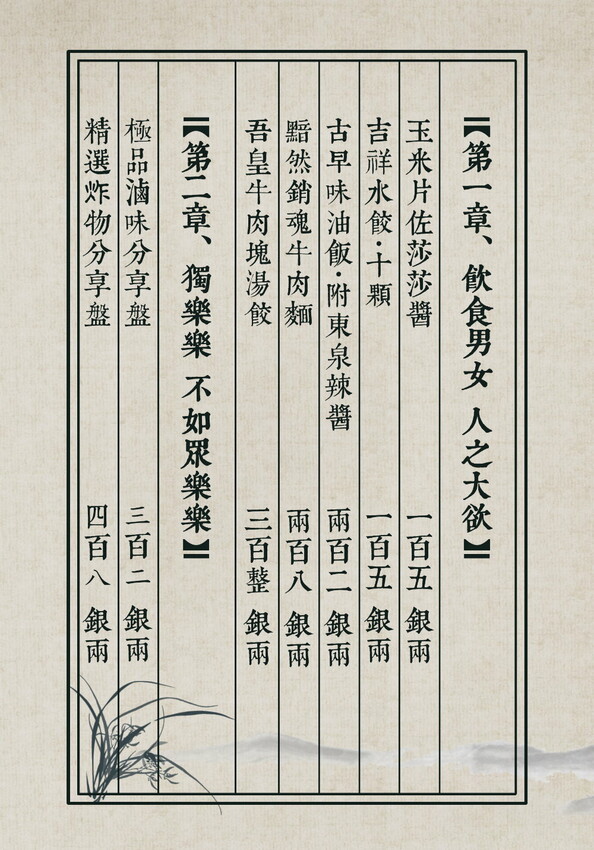 【第一章、飲食男女 人之大欲】
玉米片佐莎莎醬 一百五 銀兩
吉祥水餃·十顆 一百五 銀兩
古早味油飯·附東泉辣醬 兩百二 銀兩
黯然銷魂牛肉麵 兩百八 銀兩
吾皇牛肉塊湯餃 三百整 銀兩
【第二章、獨樂樂 不如眾樂樂】
極品滷味分享盤 三百二 銀兩
精選炸物分享盤 四百八 銀兩